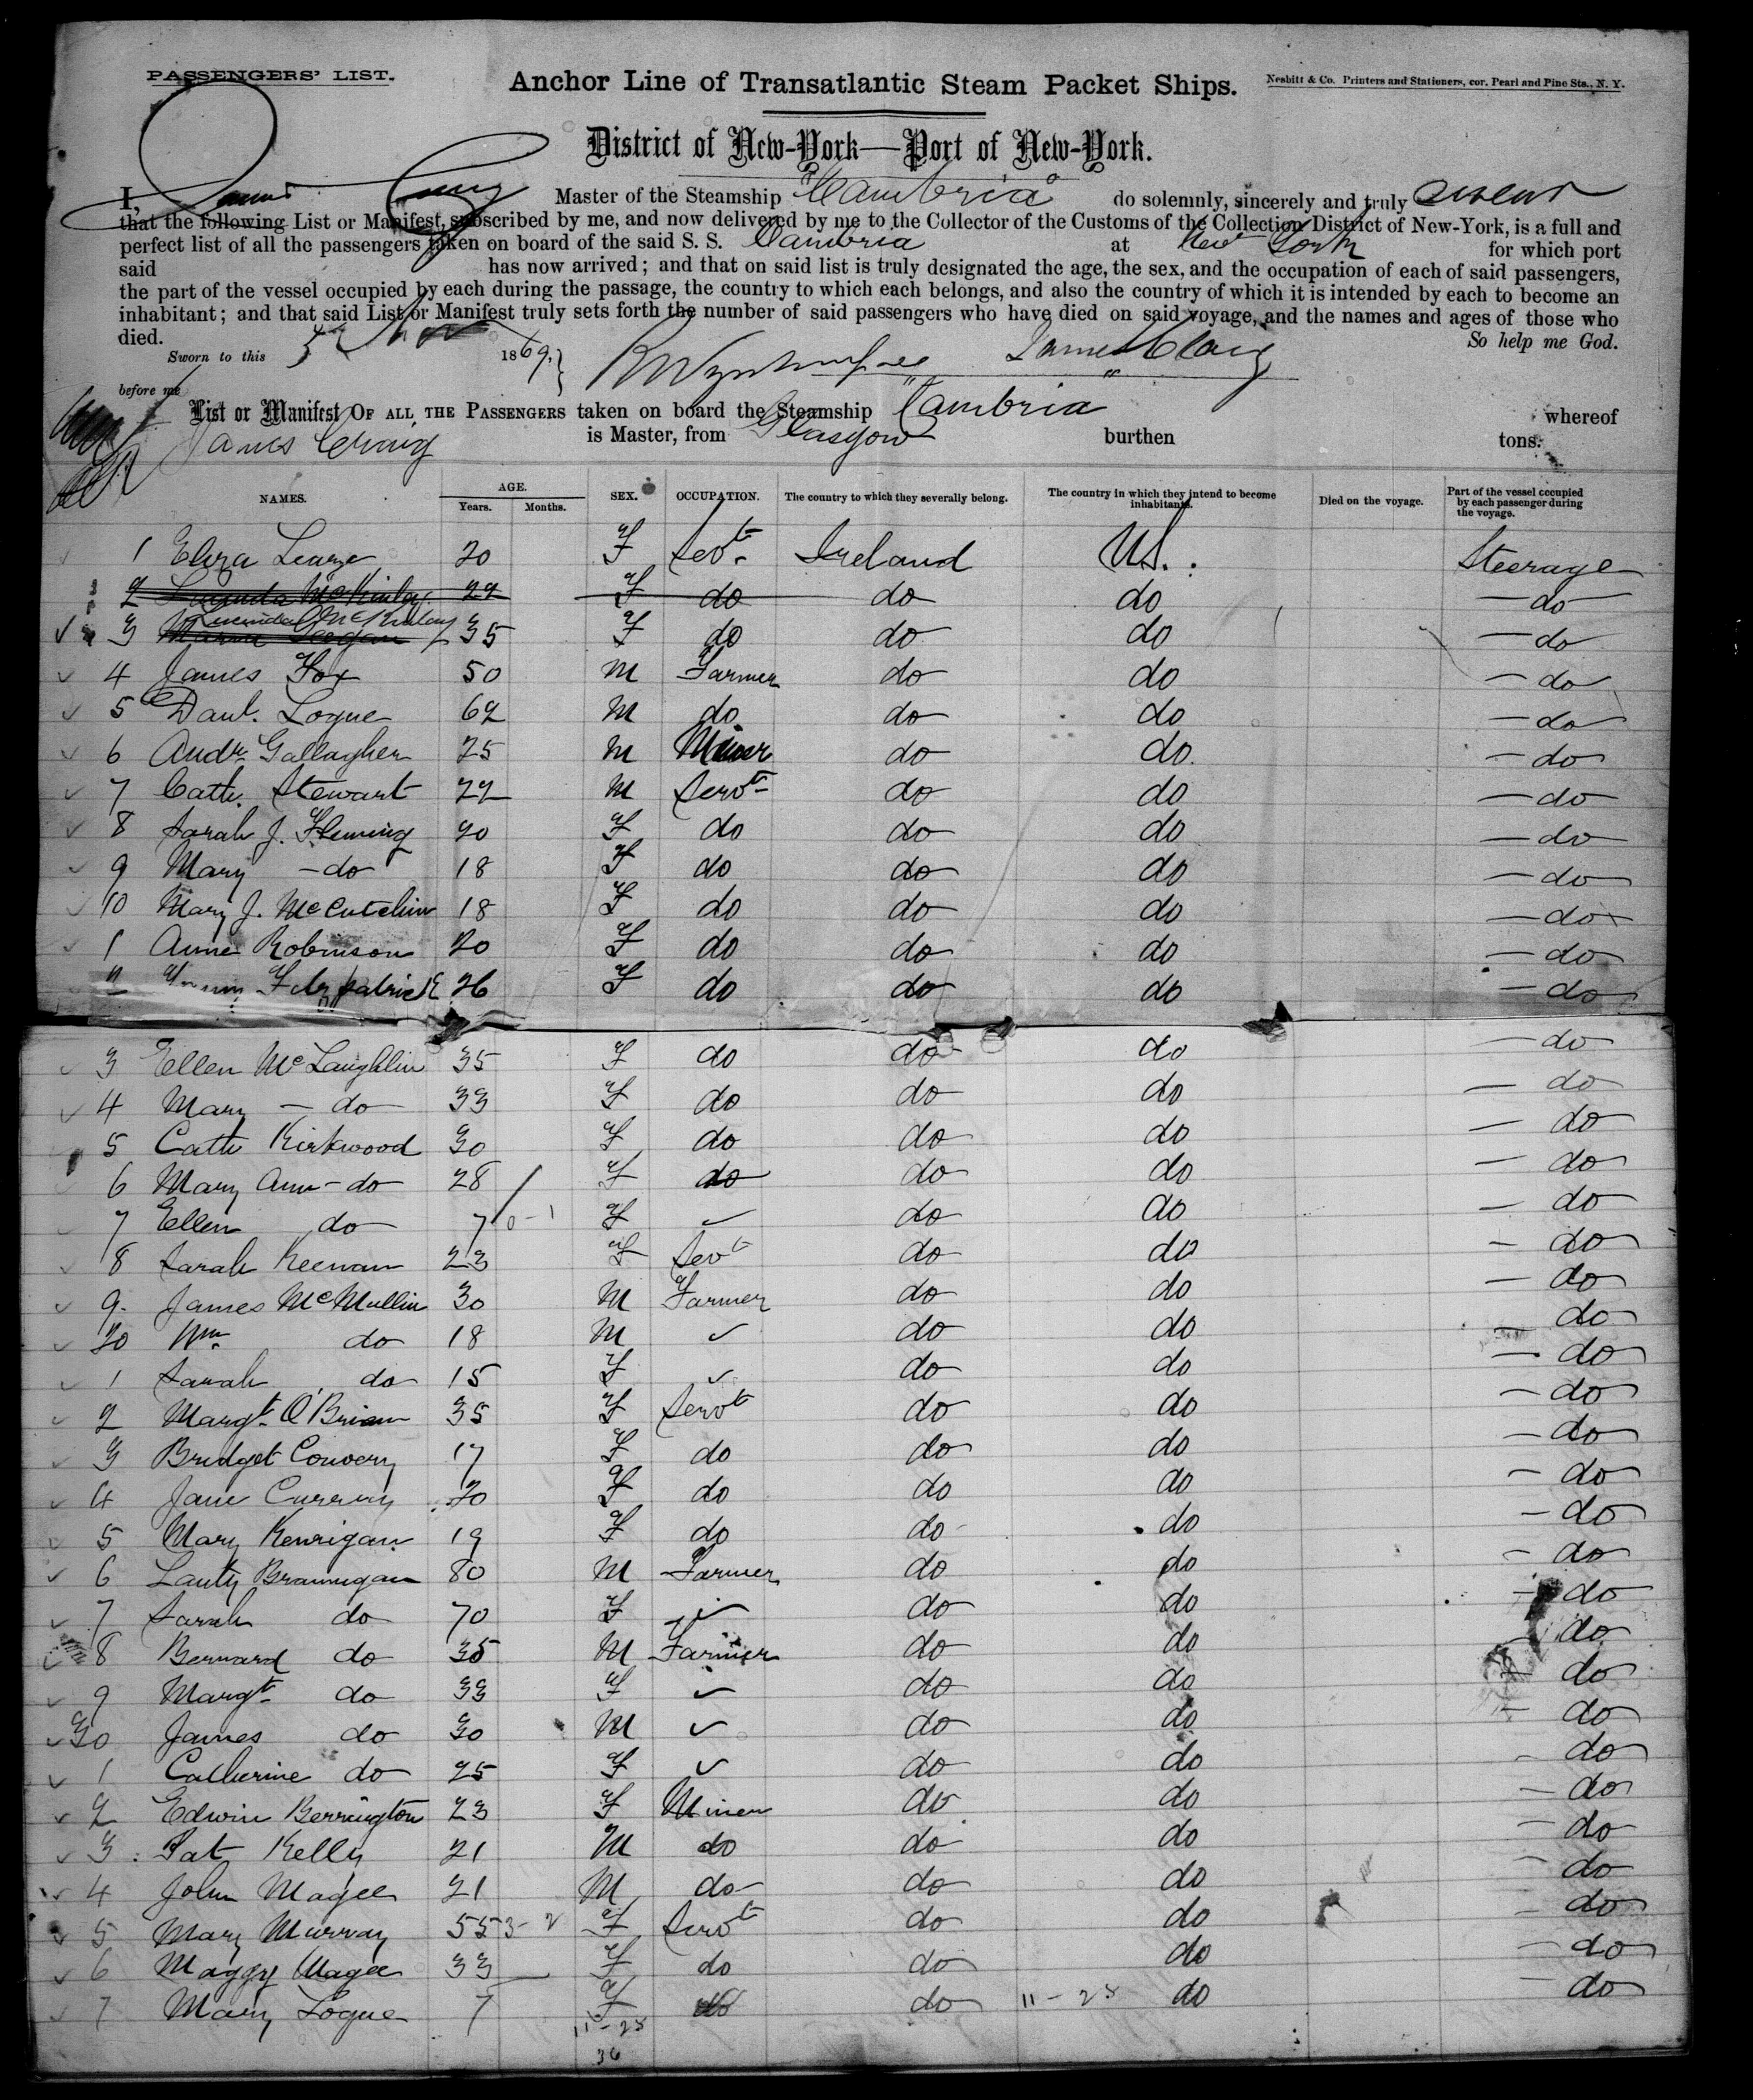 PASSENGERS' LIST.
Anchor Line of Transatlantic Steam Packet Ships.
Nesbitt & Co. Printers and Stationers, cor. Pearl and Pine Sts., N. Y.
District of New-York—Port of New-York.
I, James Craig Master of the Steamship "Cambria" do solemnly, sincerely and truly swear
that the following List or Manifest, subscribed by me, and now delivered by me to the Collector of the Customs of the Collection District of New-York, is a full and
perfect list of all the passengers taken on board of the said S. S. Cambria at New York for which port
said has now arrived; and that on said list is truly designated the age, the sex, and the occupation of each of said passengers,
the part of the vessel occupied by each during the passage, the country to which each belongs, and also the country of which it is intended by each to become an
inhabitant; and that said List or Manifest truly sets forth the number of said passengers who have died on said voyage, and the names and ages of those who
died. So help me God.
Sworn to this 5 Nov 1869. James Craig
before me
List or Manifest OF ALL THE PASSENGERS taken on board the Steamship "Cambria" whereof
James Craig is Master, from Glasgow burthen tons.
NAMES. AGE. Years. Months. SEX. OCCUPATION. The country to which they severally belong. The country in which they intend to become inhabitants. Died on the voyage. Part of the vessel occupied by each passenger during the voyage.
1 Eliza 20 F Servt. Ireland U.S. Steerage
2 Lucinda McKinley 22 F do do do — do
3 Lucinda McKinley 35 F do do do — do
4 James Fox 50 M Farmer do do — do
5 Danl. Logue 62 M do do do — do
6 Andw. Gallagher 25 M Miner do do — do
7 Cath. Stewart 22 M Servt. do do — do
8 Sarah J. Fleming 20 F do do do — do
9 Mary — do 18 F do do do — do
10 Mary J. McCutchin 18 F do do do — do
1 Anne Robinson 20 F do do do — do
" Fitzpatrick 26 F do do do — do
3 Ellen McLaughlin 35 F do do do — do
4 Mary — do 33 F do do do — do
5 Cath Kirkwood 30 F do do do — do
6 Mary Ann — do 28 F do do do — do
7 Ellen do 7 0-1 F ✓ do do — do
8 Sarah Keenan 23 F Servt do do — do
9. James McMullin 30 M Farmer do do — do
20 Wm. do 18 M ✓ do do — do
1 Sarah do 15 F ✓ do do — do
2 Margt. O'Brien 35 F Servt do do — do
3 Bridget Convery 17 F do do do — do
4 Jane Curran 20 F do do do — do
5 Mary Kerrigan 19 F do do do — do
6 Lanty Brannigan 80 M Farmer do do — do
7 Sarah do 70 F ✓ do do — do
8 Bernard do 35 M Farmer do do — do
9 Margt. do 33 F ✓ do do — do
30 James do 30 M ✓ do do — do
1 Catherine do 25 F ✓ do do — do
2 Edwin Berrington 23 F Miner do do — do
3 Pat Kelly 21 M do do do — do
4 John Magee 21 M do do do — do
5 Mary Murray 55 3-2 F Servt do do — do
6 Maggy Magee 33 F do do do — do
7 Mary Logue 7 F do do 11-25 do — do
11-25
36